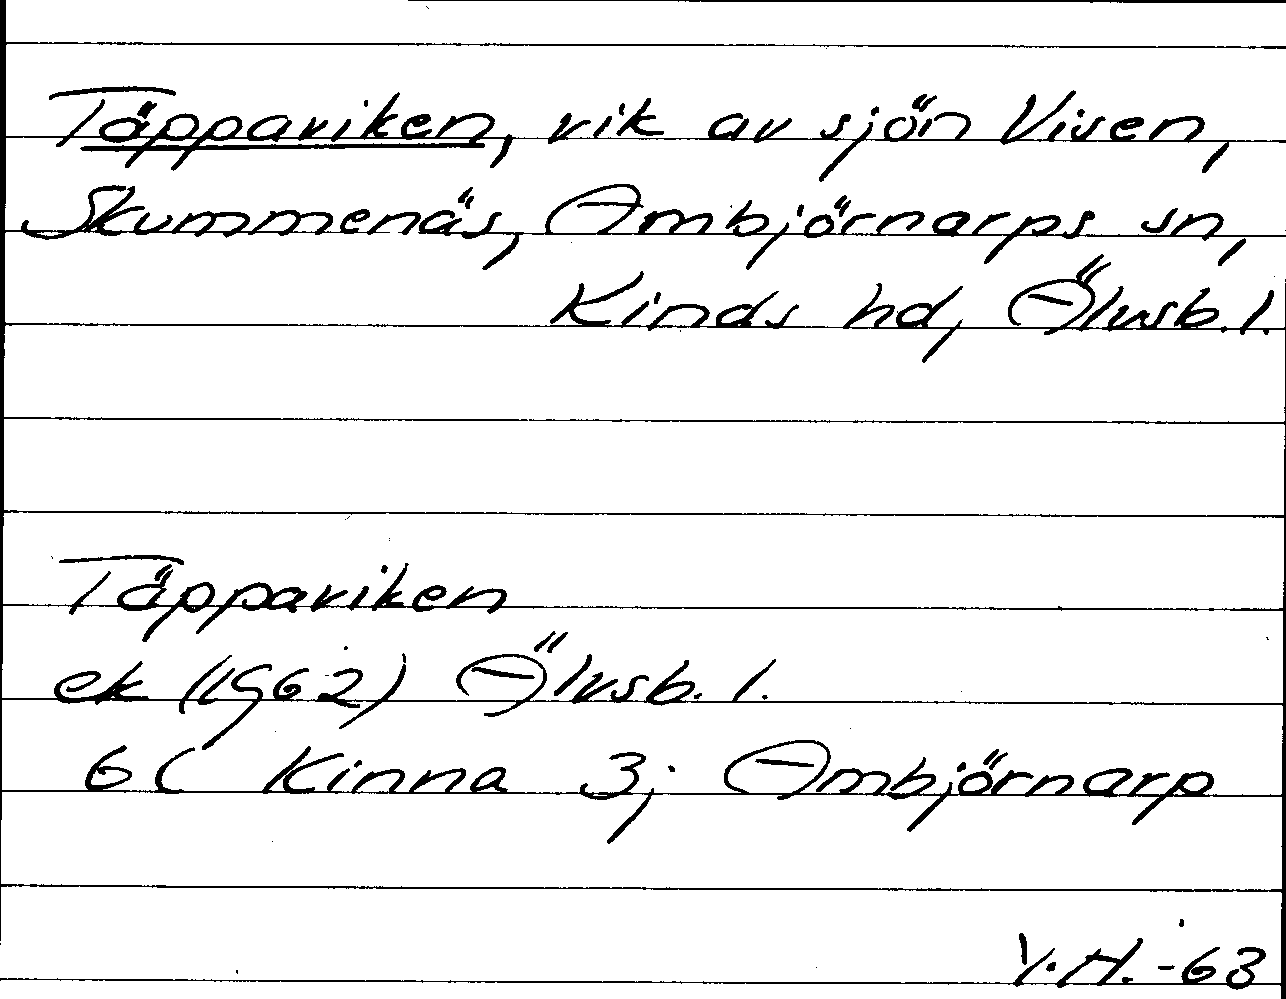 Täppaviken, vik av sjön Visen,
Skummenäs, Ambjörnarps sn,
Kinds hd, Älvsb. l.
Täppaviken
ek (1962) Älvsb. l.
6C Kinna 3; Ambjörnarp
Y.H. -63